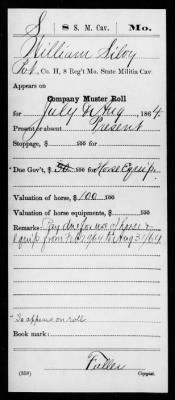 S 8 S. M. Cav. Mo.
William Silvy
Pvt, Co. H, 8 Reg't Mo. State Militia Cav.
Appears on
Company Muster Roll
for July & Aug, 1864.
Present or absent Present
Stoppage, $ 100 for
Due Gov't, $ 100 for Horse Equip
Valuation of horse, $ 100 100
Valuation of horse equipments, $ 100
Remarks: Pay due for use of horse &
equip. from
Book mark:
* To appears on roll
Fuller
(358) Copyist.